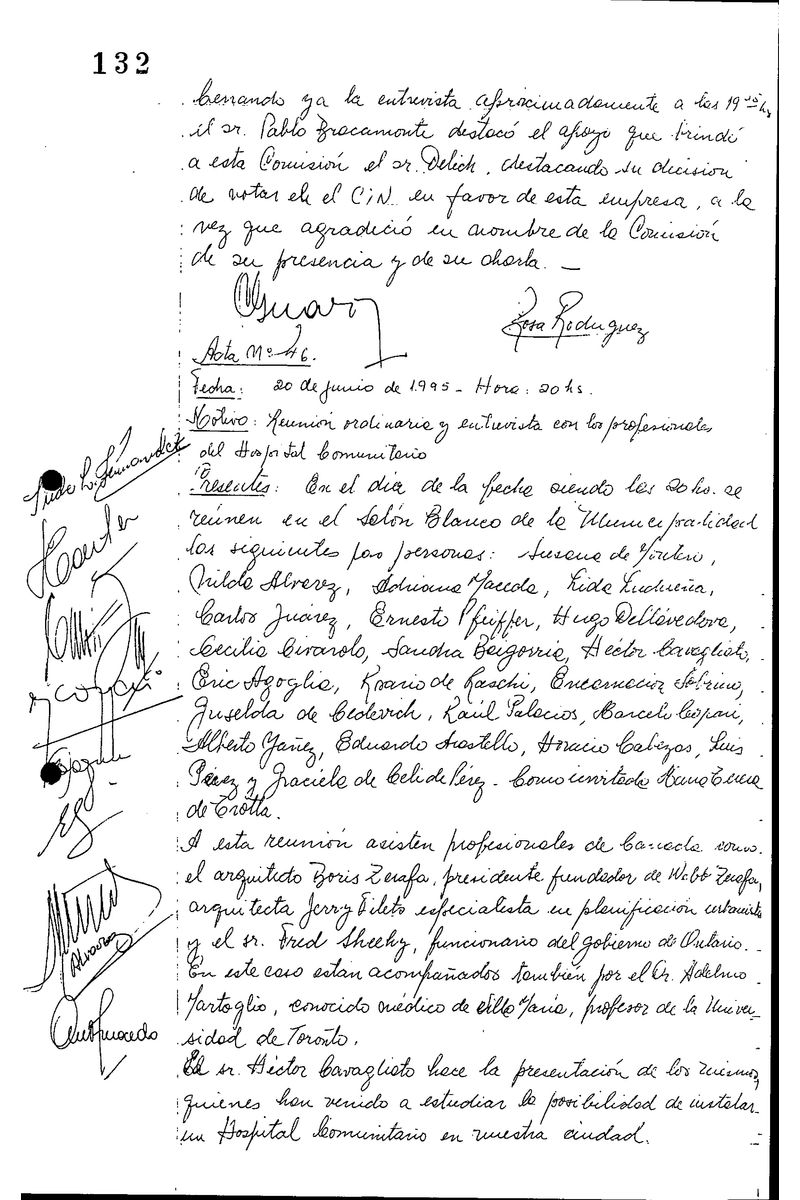 132
Cerrando ya la entrevista aproximadamente a las 19 hs
el sr. Pablo Bracamonte destacó el apoyo que brindó
a esta Comisión el sr. Delich, destacando su decisión
de votar en el C.I.N. en favor de esta empresa, a la
vez que agradeció en nombre de la Comisión
de su presencia y de su charla. —
Rosa Rodriguez
Acta Nº 46.
Fecha: 20 de junio de 1.995 - Hora: 20 hs.
Motivo: Reunión ordinaria y entrevista con los profesionales
del Hospital Comunitario
Presentes: En el día de la fecha siendo las 20 hs. se
reúnen en el Salón Blanco de la Municipalidad
las siguientes personas: Susana de
Nilda Alvarez, Adriana Maceda, Lida Ludueña,
Carlos Juárez, Ernesto Pfeiffer, Hugo Dellavedova,
Cecilia Civarolo, Sandra Baigorria, Héctor Cavagliato,
Eric Agoglia, Rosario de Raschi, Encarnación Sobrino,
Griselda de Cedevich, Raúl Palacios, Marcelo
Alberto Yáñez, Eduardo Horacio Cabezas, Luis
Pérez y Graciela de Celi de Pérez. Como invitada
de Trotta.
A esta reunión asisten profesionales de Canadá como
el arquitecto Boris Zerafa, presidente fundador de Webb Zerafa,
arquitecta Jerry Fileto especialista en planificación urbanista
y el sr. Fred Sheehy, funcionario del gobierno de Ontario.
En este caso están acompañados también por el Dr. Adelmo
Martoglio, conocido médico de Villa María, profesor de la Univer-
sidad de Toronto.
El sr. Héctor Cavagliato hace la presentación de los mismos,
quienes han venido a estudiar la posibilidad de instalar
un Hospital Comunitario en nuestra ciudad.
Fernández
Alvarez